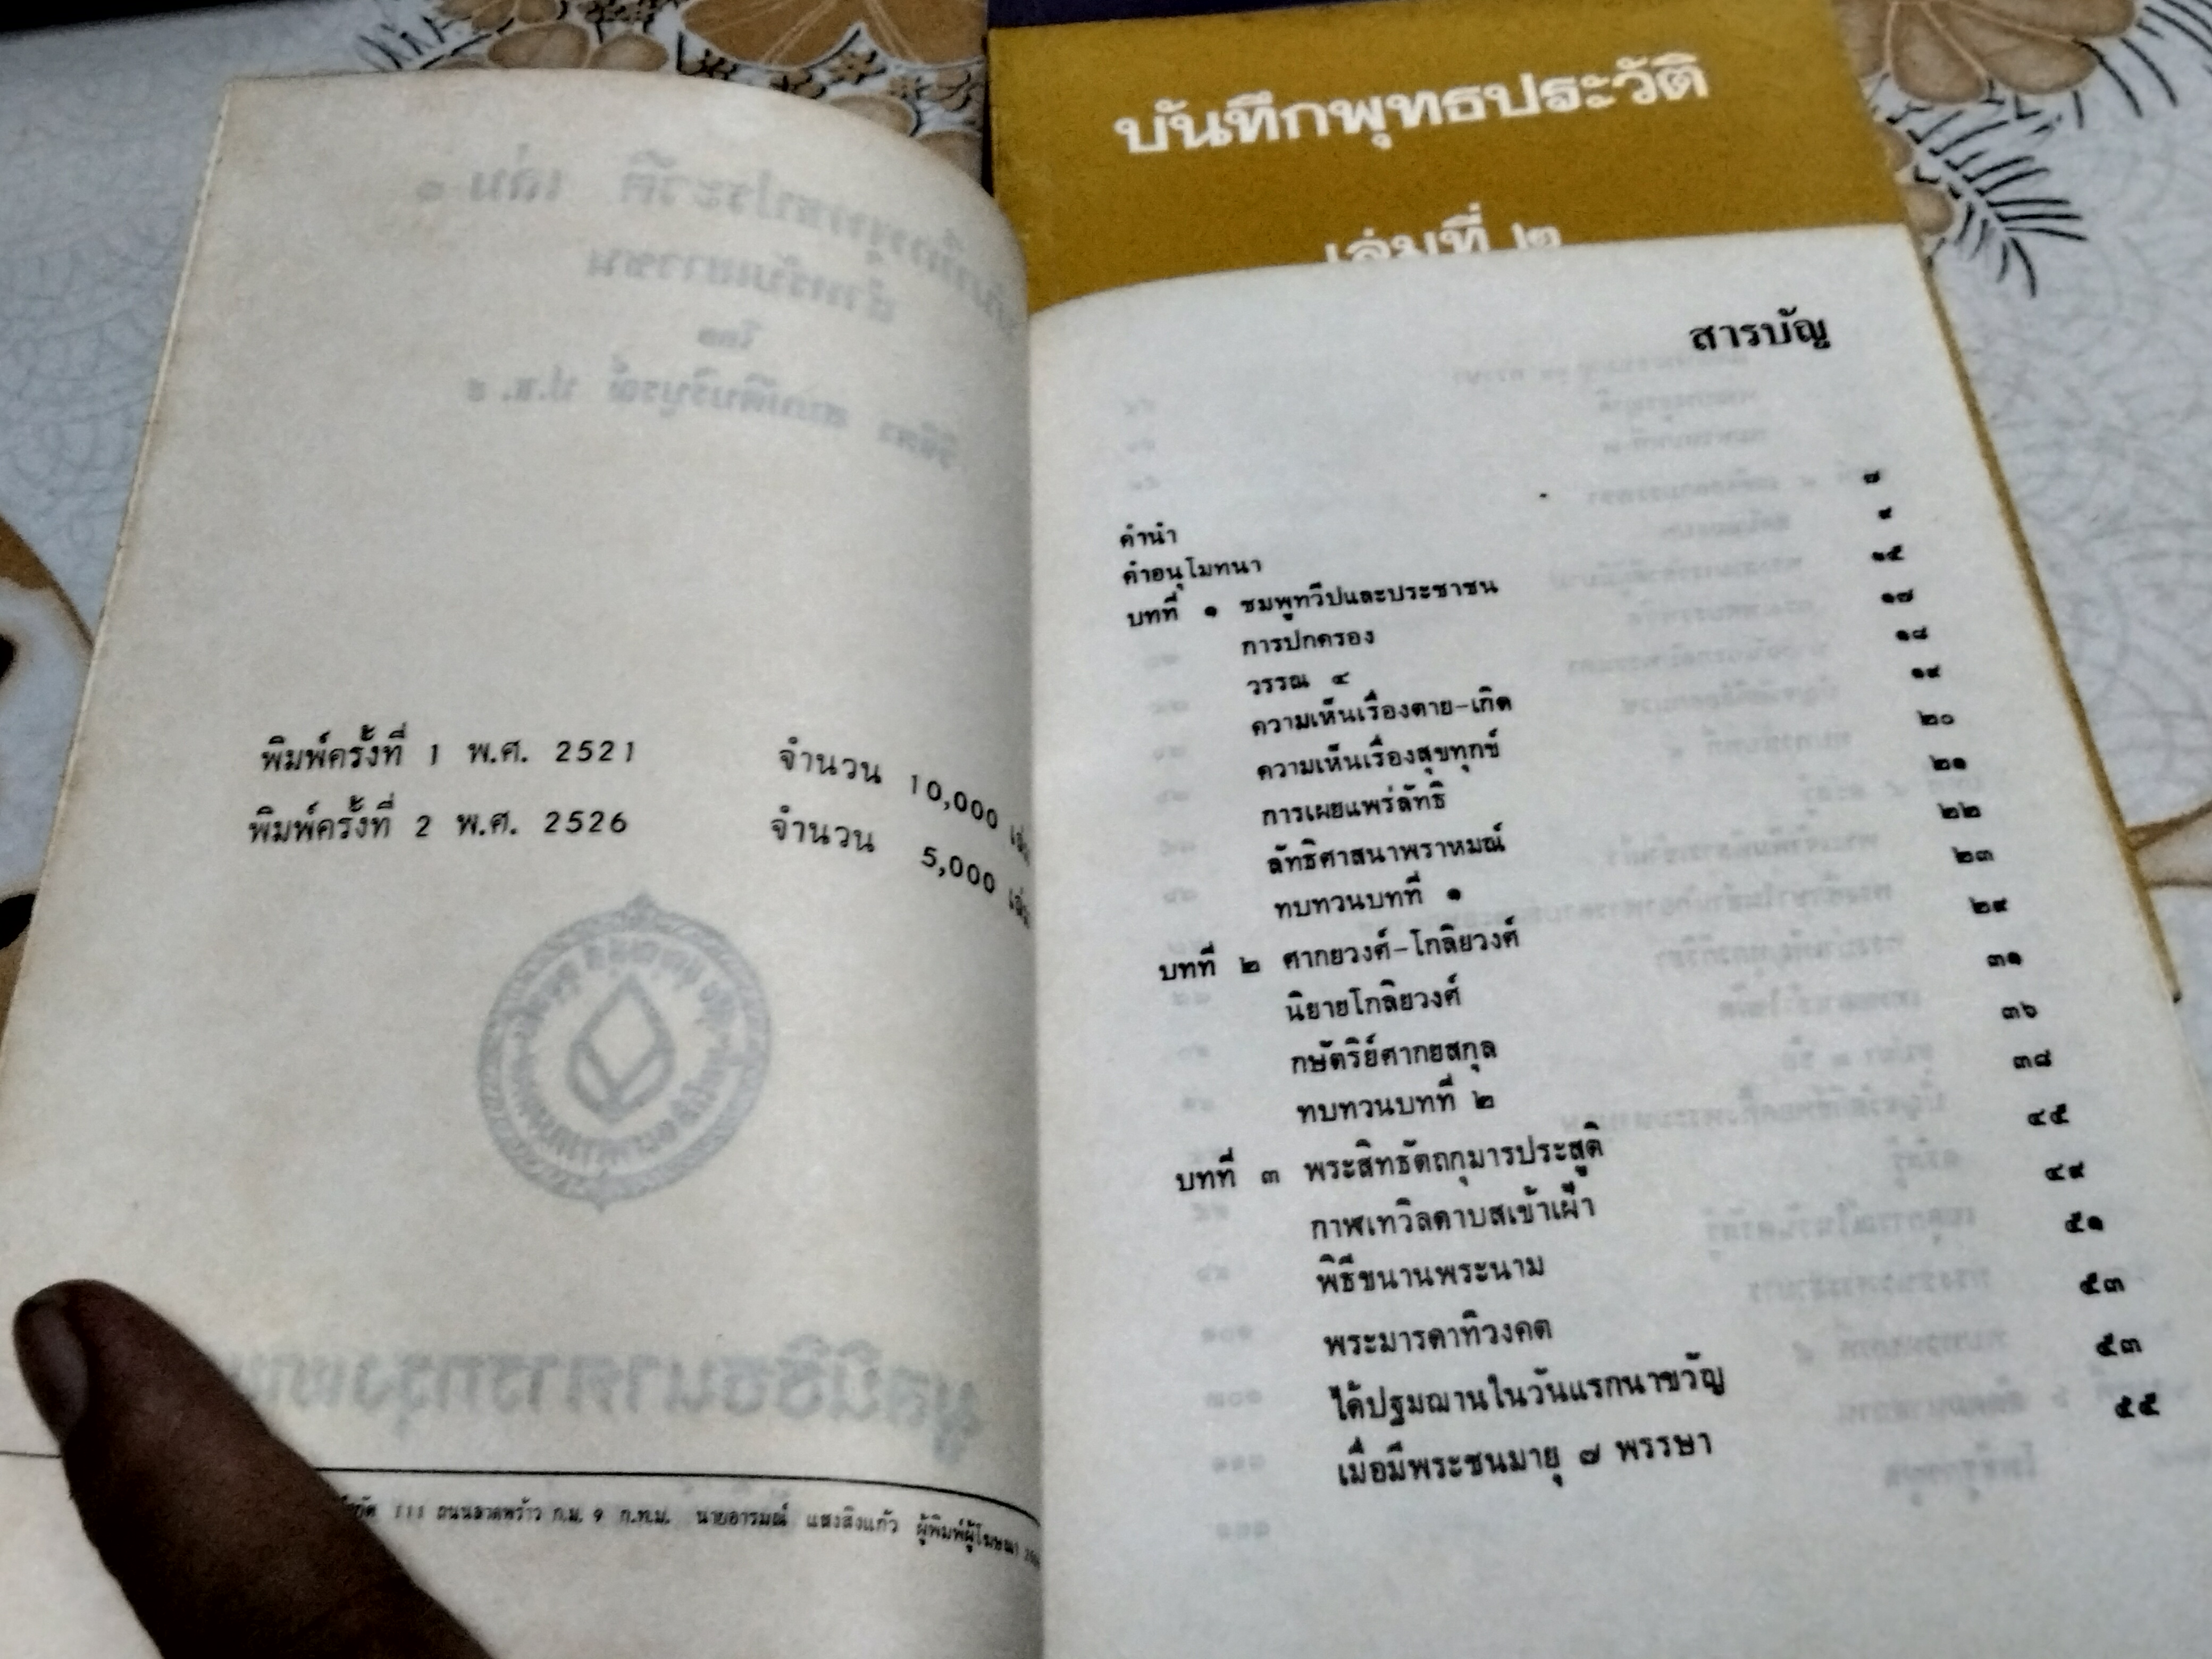 บันทึกพุทธประวัติ
เล่มที่ ๒
พิมพ์ครั้งที่ 1 พ.ศ. 2521 จำนวน 10,000
พิมพ์ครั้งที่ 2 พ.ศ. 2526 จำนวน 5,000
111 ถนนลาดพร้าว ก.ม. 9 ก.ท.ม. นายอารมณ์ แสงสิงแก้ว ผู้พิมพ์ผู้โฆษณา
สารบัญ
คำนำ ๗
คำอนุโมทนา ๙
บทที่ ๑ ชมพูทวีปและประชาชน ๑๕
การปกครอง ๑๗
วรรณ ๔ ๑๘
ความเห็นเรื่องตาย-เกิด ๑๙
ความเห็นเรื่องสุขทุกข์ ๒๐
การเผยแพร่ลัทธิ ๒๑
ลัทธิศาสนาพราหมณ์ ๒๒
ทบทวนบทที่ ๑ ๒๓
บทที่ ๒ ศากยวงศ์-โกลิยวงศ์ ๒๙
นิยายโกลิยวงศ์ ๓๑
กษัตริย์ศากยสกุล ๓๖
ทบทวนบทที่ ๒ ๓๘
บทที่ ๓ พระสิทธัตถกุมารประสูติ ๔๕
กาฬเทวิลดาบสเข้าเฝ้า ๔๙
พิธีขนานพระนาม ๕๑
พระมารดาทิวงคต ๕๓
ได้ปฐมฌานในวันแรกนาขวัญ ๕๓
เมื่อมีพระชนมายุ ๗ พรรษา ๕๕